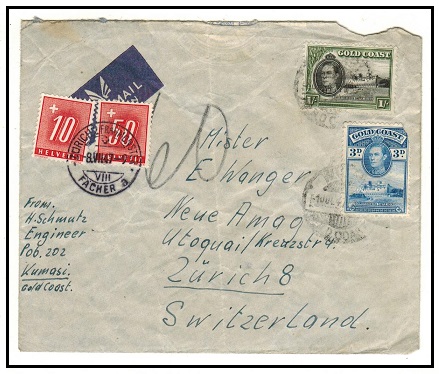 GOLD COAST
1/- 1/-
AIR MAIL
10 50
HELVETIA
ZÜRICH
8.VIII.47
VIII
FÄCHER a
GOLD COAST
3D 3D
Mister
E. Wanger
Neue Amag
Utoquai/Kreuzstr.
Zürich 8
Switzerland.
From.
H. Schmutz
Engineer
Pob. 202
Kumasi.
Gold Coast.